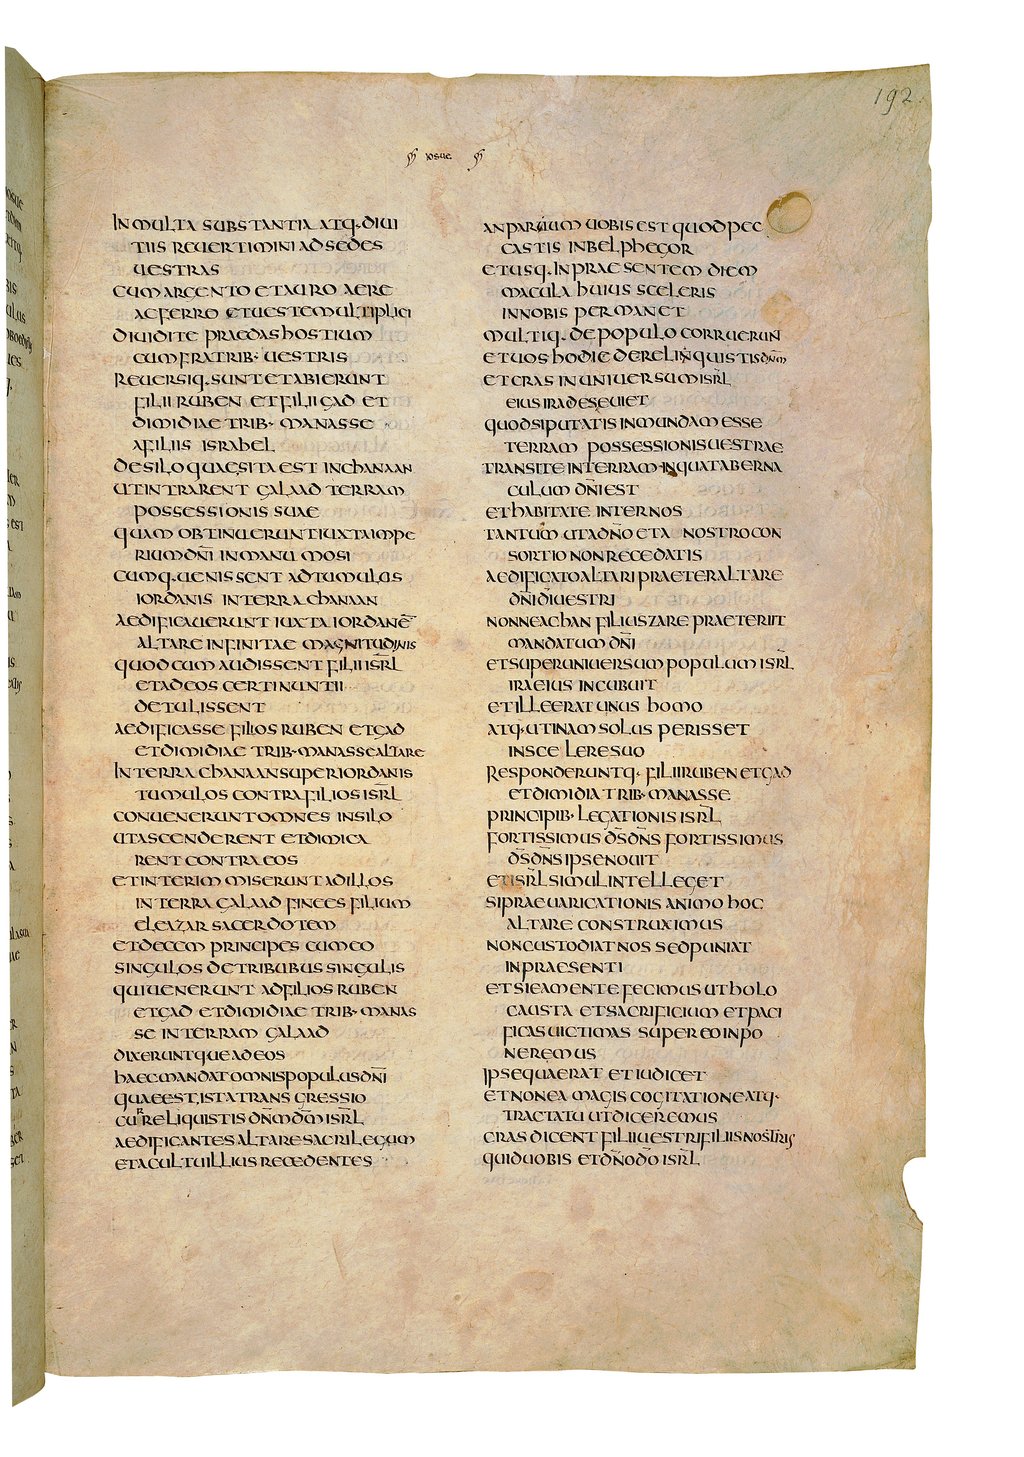 192
iosue
IN MULTA SUBSTANTIA ATQ· DIUI
TIIS REUERTIMINI AD SEDES
UESTRAS
CUM ARGENTO ET AURO AERE
AC FERRO ET UESTE MULTIPLICI
DIUIDITE PRAEDAS HOSTIUM
CUM FRATRIB· UESTRIS
REUERSIQ· SUNT ET ABIERUNT
FILII RUBEN ET FILII GAD ET
DIMIDIAE TRIB· MANASSE
A FILIIS ISRAHEL
DE SILO QUAE SITA EST IN CHANAAN
UT INTRARENT GALAAD TERRAM
POSSESSIONIS SUAE
QUAM OBTINUERUNT IUXTA IMPE
RIUM DN̄I IN MANU MOSI
CUMQ· UENISSENT AD TUMULUS
IORDANIS IN TERRA CHANAAN
AEDIFICAUERUNT IUXTA IORDANĒ
ALTARE INFINITAE MAGNITUDINIS
QUOD CUM AUDISSENT FILII ISR̄L
ET AD EOS CERTI NUNTII
DETULISSENT
AEDIFICASSE FILIOS RUBEN ET GAD
ET DIMIDIAE TRIB· MANASSE ALTARE
IN TERRA CHANAAN SUPER IORDANIS
TUMULOS CONTRA FILIOS ISR̄L
CONUENERUNT OMNES IN SILO
UT ASCENDERENT ET DIMICA
RENT CONTRA EOS
ET INTERIM MISERUNT AD ILLOS
IN TERRA GALAAD FINEES FILIUM
ELEAZAR SACERDOTEM
ET DECEM PRINCIPES CUM EO
SINGULOS DE TRIBUBUS SINGULIS
QUI UENERUNT AD FILIOS RUBEN
ET GAD ET DIMIDIAE TRIB· MANAS
SE IN TERRAM GALAAD
DIXERUNTQUE AD EOS
HAEC MANDAT OMNIS POPULUS DN̄I
QUAE EST ISTA TRANSGRESSIO
CUR RELIQUISTIS DN̄M D̄M ISR̄L
AEDIFICANTES ALTARE SACRILEGUM
ET A CULTU ILLIUS RECEDENTES
AN PARUUM UOBIS EST QUOD PEC
CASTIS IN BELPHEGOR
ET USQ· IN PRAESENTEM DIEM
MACULA HUIUS SCELERIS
IN NOBIS PERMANET
MULTIQ· DE POPULO CORRUERUN
ET UOS HODIE DERELINQUISTIS DN̄M
ET CRAS IN UNIUERSUM ISR̄L
EIUS IRA DESEUIET
QUOD SI PUTATIS INMUNDAM ESSE
TERRAM POSSESSIONIS UESTRAE
TRANSITE IN TERRAM IN QUA TABERNA
CULUM DN̄I EST
ET HABITATE INTER NOS
TANTUM UT A DN̄O ET A NOSTRO CON
SORTIO NON RECEDATIS
AEDIFICATO ALTARI PRAETER ALTARE
DN̄I D̄I UESTRI
NONNE ACHAN FILIUS ZARE PRAETERIIT
MANDATUM DN̄I
ET SUPER UNIUERSUM POPULUM ISR̄L
IRA EIUS INCUBUIT
ET ILLE ERAT UNUS HOMO
ATQ· UTINAM SOLUS PERISSET
IN SCELERE SUO
RESPONDERUNTQ· FILII RUBEN ET GAD
ET DIMIDIA TRIB· MANASSE
PRINCIPIB· LEGATIONIS ISR̄L
FORTISSIMUS D̄S DN̄S FORTISSIMUS
D̄S DN̄S IPSE NOUIT
ET ISR̄L SIMUL INTELLEGET
SI PRAEUARICATIONIS ANIMO HOC
ALTARE CONSTRUXIMUS
NON CUSTODIAT NOS SED PUNIAT
IN PRAESENTI
ET SI EA MENTE FECIMUS UT HOLO
CAUSTA ET SACRIFICIUM ET PACI
FICAS UICTIMAS SUPER EO INPO
NEREMUS
IPSE QUAERAT ET IUDICET
ET NON EA MAGIS COGITATIONE ATQ·
TRACTATU UT DICEREMUS
CRAS DICENT FILII UESTRI FILIIS NOSTRIS
QUID UOBIS ET DN̄O D̄O ISR̄L